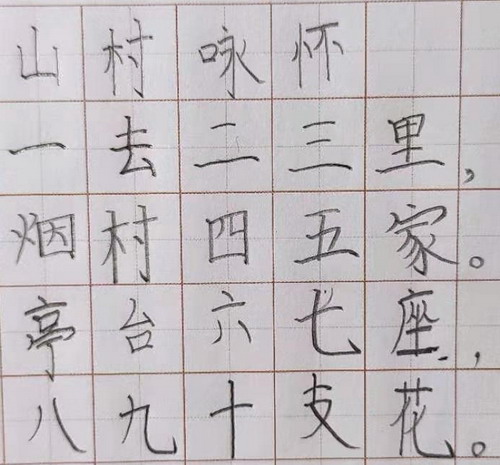 山村咏怀
一去二三里，
烟村四五家。
亭台六七座，
八九十支花。